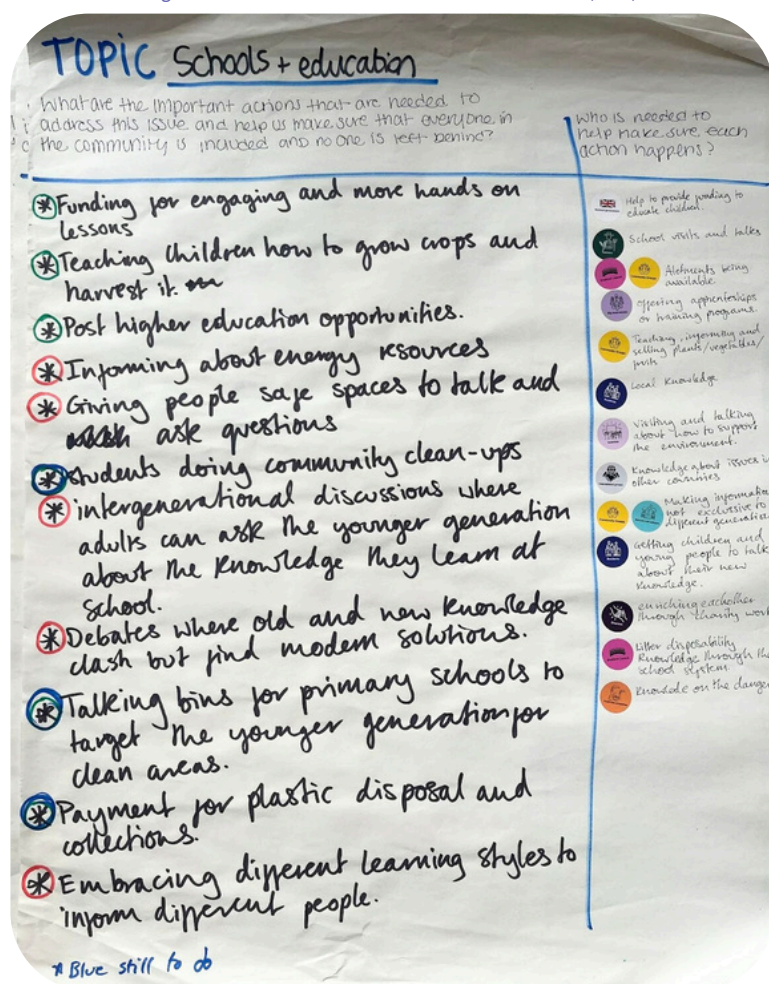 TOPIC Schools + education
What are the important actions that are needed to
address this issue and help us make sure that everyone in
the community is included and no one is left behind?
* Funding for engaging and more hands on
lessons
* Teaching children how to grow crops and
harvest it.
* Post higher education opportunities.
* Informing about energy resources
* Giving people safe spaces to talk and
ask questions
* students doing community clean-ups
* intergenerational discussions where
adults can ask the younger generation
about the knowledge they learn at
school.
* Debates where old and new knowledge
clash but find modern solutions.
* Talking bins for primary schools to
target the younger generation for
clean areas.
* Payment for plastic disposal and
collections.
* Embracing different learning styles to
inform different people.
* Blue still to do
Who is needed to
help make sure each
action happens?
Help to provide funding to
educate children.
School visits and talks
Alotments being
available
offering apprenterships
or training programs.
Teaching, informing and
selling plants/vegetables/
fruits
Local knowledge
Visiting and talking
about how to support
the environment.
Knowledge about issues in
other countries
Making information
not exclusive to
different generations
Getting children and
young people to talk
about their new
knowledge.
enriching eachother
through charity work
Litter disposability
knowledge through the
school system
Knowlede on the danger